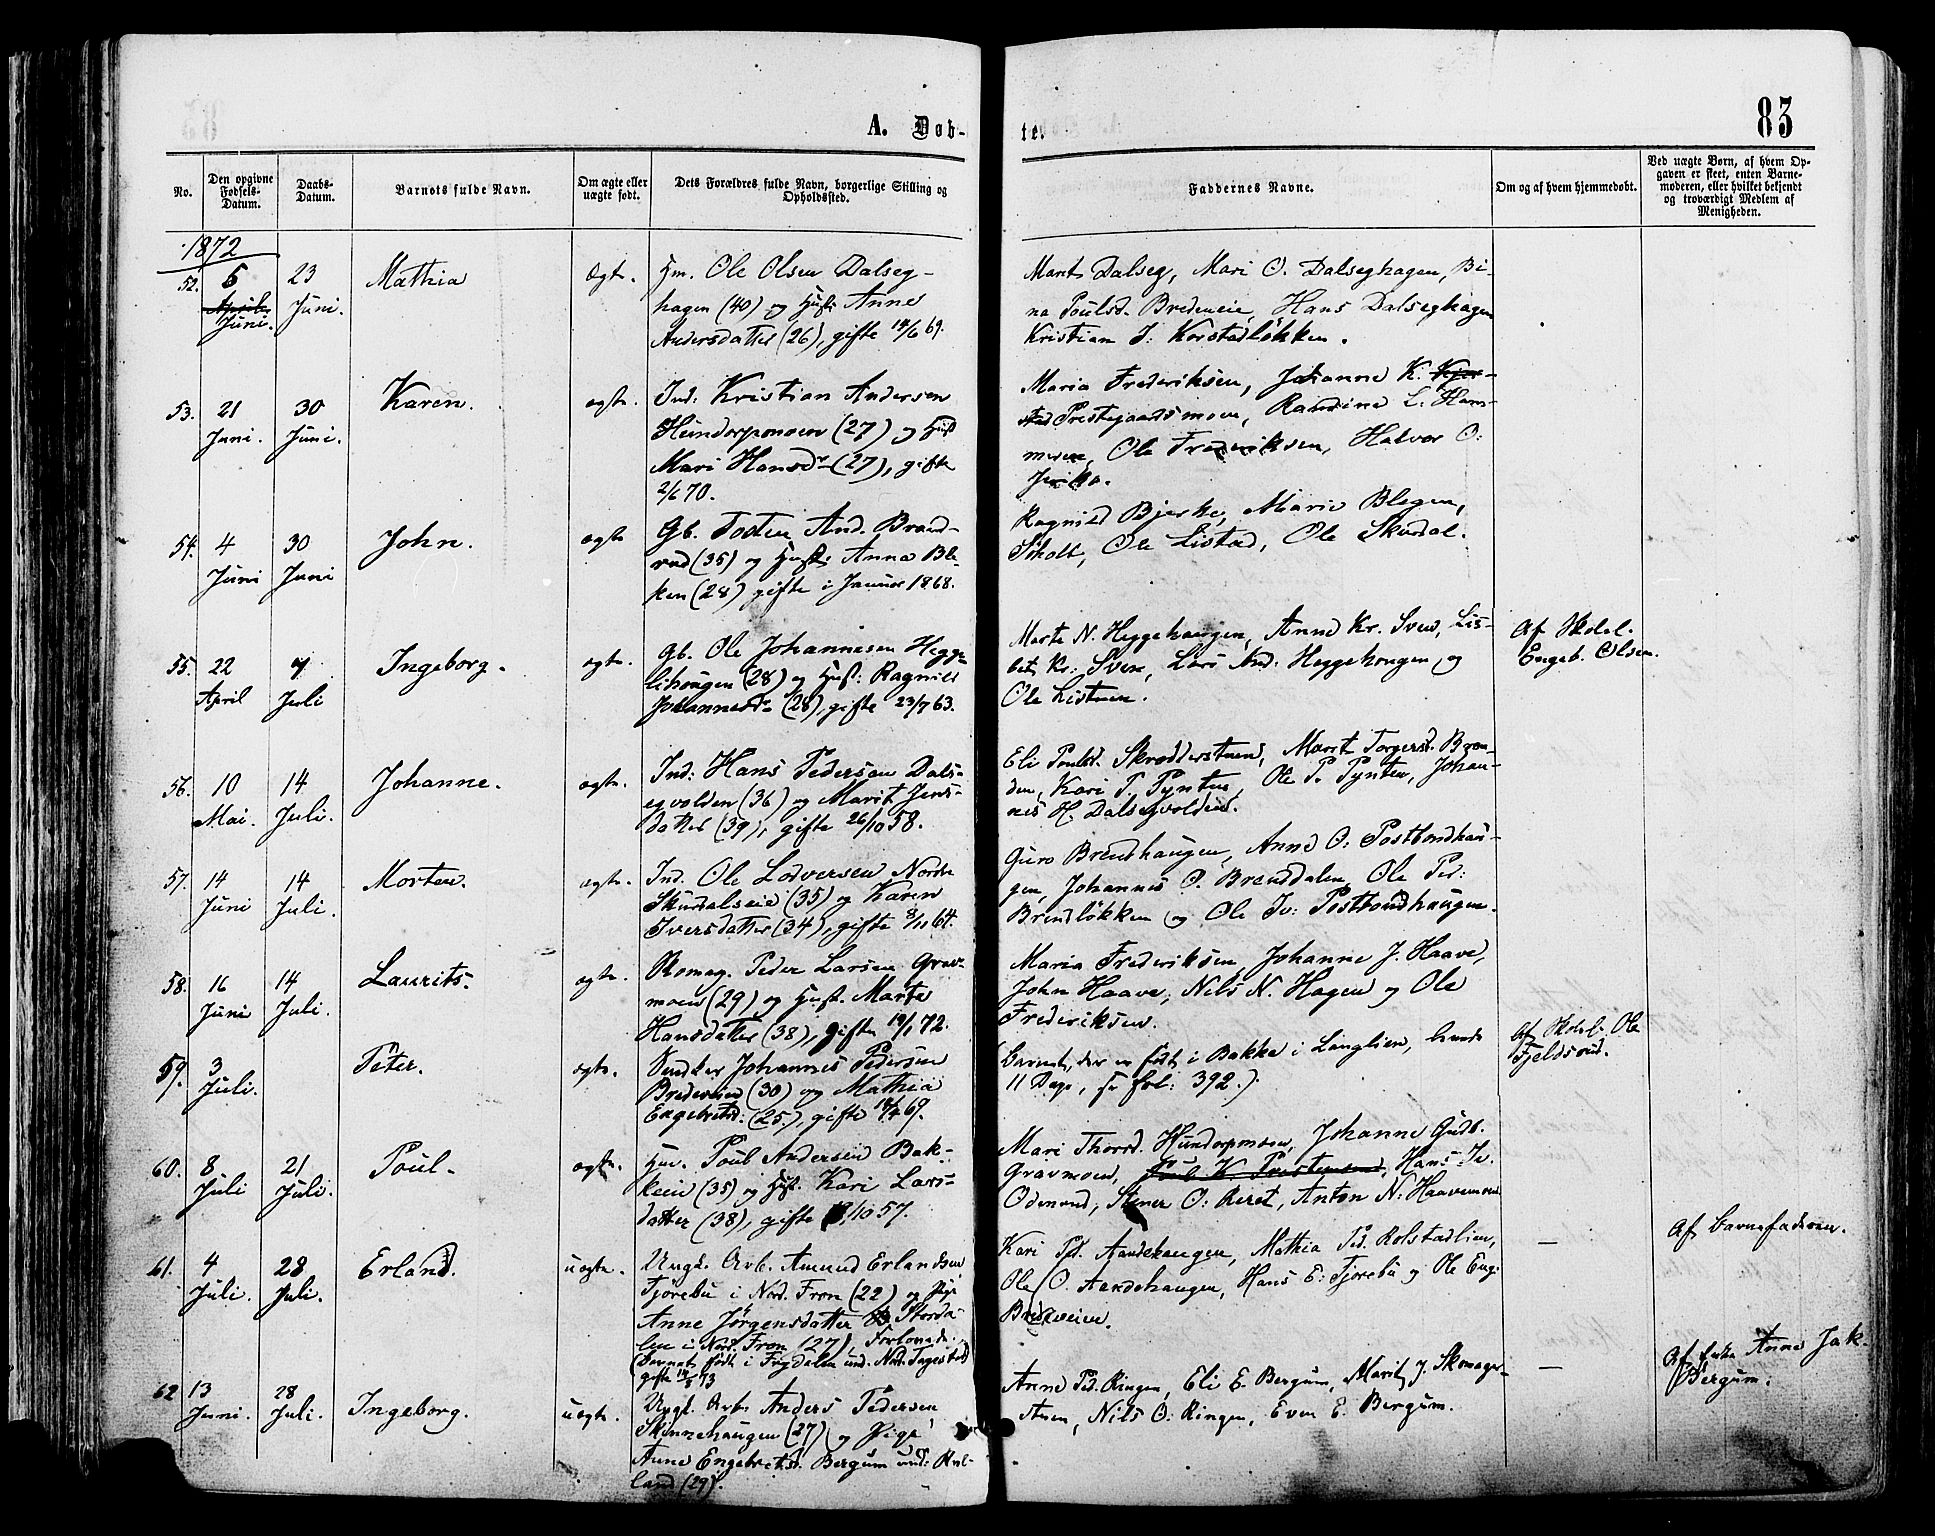 A. Døb-
te.
83
No.
Den opgivne Fødsels-Datum.
Daabs-Datum.
Barnets fulde Navn.
Om ægte eller uægte født.
Dets Forældres fulde Navn, borgerlige Stilling og Opholdssted.
Faddernes Navne.
Om og af hvem hjemmedøbt.
Ved uægte Børn, af hvem Opgaven er skeet, enten Barnemoderen, eller hvilket bekjendt og troværdigt Medlem af Menigheden.
1872
52. 6 April Juni. 23 Juni. Mathia Ægte.
Hm. Ole Olsen Dalseg-
hagen (40) og Hustr. Anne
Andersdatter (26), gifte 14/6 69.
Marit Dalseg, Mari O. Dalseghagen, Bi-
na Poulsd. Bredeveie, Hans Dalseghagen
Kristian J: Korstadløkken.
53. 21 Juni. 30 Juni. Karen. ægte.
Ind: Kristian Andersen
Hundorpmoen (27) og Hust
Mari Hansdr (27), gifte
2/6 70.
Maria Frederiksen, Johanne K.
Prestegaardsmoen, Randine L. Hans-
moen, Ole Frederiksen, Halvor O:
54. 4 Juni 30 Juni John. ægte
Gb. Tosten And. Brand-
rud (35) og Hust: Anna Ble-
ken (28) gifte i Januar 1868.
Ragnild Bjerke, Marie Blegen,
Siholt, Ole Listad, Ole Skurdal.
55. 22 April 7 Juli Ingeborg. ægte.
Gb. Ole Johannesen Hegge-
lihougen (28) og Hust: Ragnild
Johannesd. (28), gifte 23/7 63.
Marte N. Heggehaugen, Anne Kr. Sven, Lis-
bet Kr: Sven, Lars And. Heggehougen og
Ole Listuen.
Af Skolel.
Engeb. Olsen.
56. 10 Mai. 14 Juli. Johanne. ægte.
Ind: Hans Pedersen Dals-
egvolden (36) og Marit Jens-
datter (39), gifte 26/10 58.
Eli Poulsd. Skrødderstuen, Marit Torgersd. Bræn-
den, Kari P. Pynten, Ole P. Pynten, Johan-
nes H. Dalsegvolden.
57. 14 Juni 14 Juli. Morten. ægte.
Ind. Ole Lodversen Nordre
Skurdalseie (35) og Karen
Iversdatter (34), gifte 8/11 64.
Guro Brendhaugen, Anne O: Postbondhau-
gen, Johannes O. Brenddalen, Ole Ped:
Brendløkken og Ole Iv: Postbondhaugen.
58. 16 Juni 14 Juli. Laurits. ægte.
Skomag. Peder Larsen Grav-
moen (29) og Hust. Marte
Hansdatter (38), gifte 19/1 72.
Maria Frederiksen, Johanne J. Haave,
John Haave, Nils N. Hagen og Ole
Frederiksen.
59. 3 Juli. Peter. ægte.
Snedker Johannes Pedersen
Bredeveien (30) og Mathia
Engebretsd: (25), gifte 69.
(Barnet, der er født i Bakke i Langlien, levede
11 Dage, se fol: 392.).
Af Skolel. Ole
Fjeldsrud.
60. 8 Juli 21 Juli. Poul. ægte.
Hm. Poul Andersen Bak-
keeie (35) og Hust. Kari Lars-
datter (38), gifte 18/10 57.
Mari Thorsd. Hundorpmoen, Johanne Gudb.
Gravmoen, Hans Iv.
Odenrud, Stener O: Reret, Anton N: Haavemoen.
61. 4 Juli. 28 Juli. Erland. uægte.
Ungk. Arb. Amund Erlandsen
Tjørebu i Nord. Fron (22) og Pige
Anne Jørgensdatter Storda-
len i Nord. Fron (27), Forlovede.
(Barnet født i Frydalen und. Nord. Tagestad)
gifte 73
Kari Pd. Aandehaugen, Mathia Ped. Rolstadlien,
Ole O. Aandehaugen, Hans E: Tjørebu og Ole Eng:
Bredeveien.
—
Af Barnefaderen.
62 13 Juni. 28 Juli. Ingeborg. uægte.
Ungk. Arb. Anders Pedersen
Skinnehaugen (27) og Pige
Anne Engebretsd. Bergum und: Rul-
land (29).
Anne Ped. Ringen, Eli E. Bergum, Marit J. Skomager-
stuen, Nils O: Ringen, Even E. Bergum.
—
Af Enke Anne Jak-
Bergum.